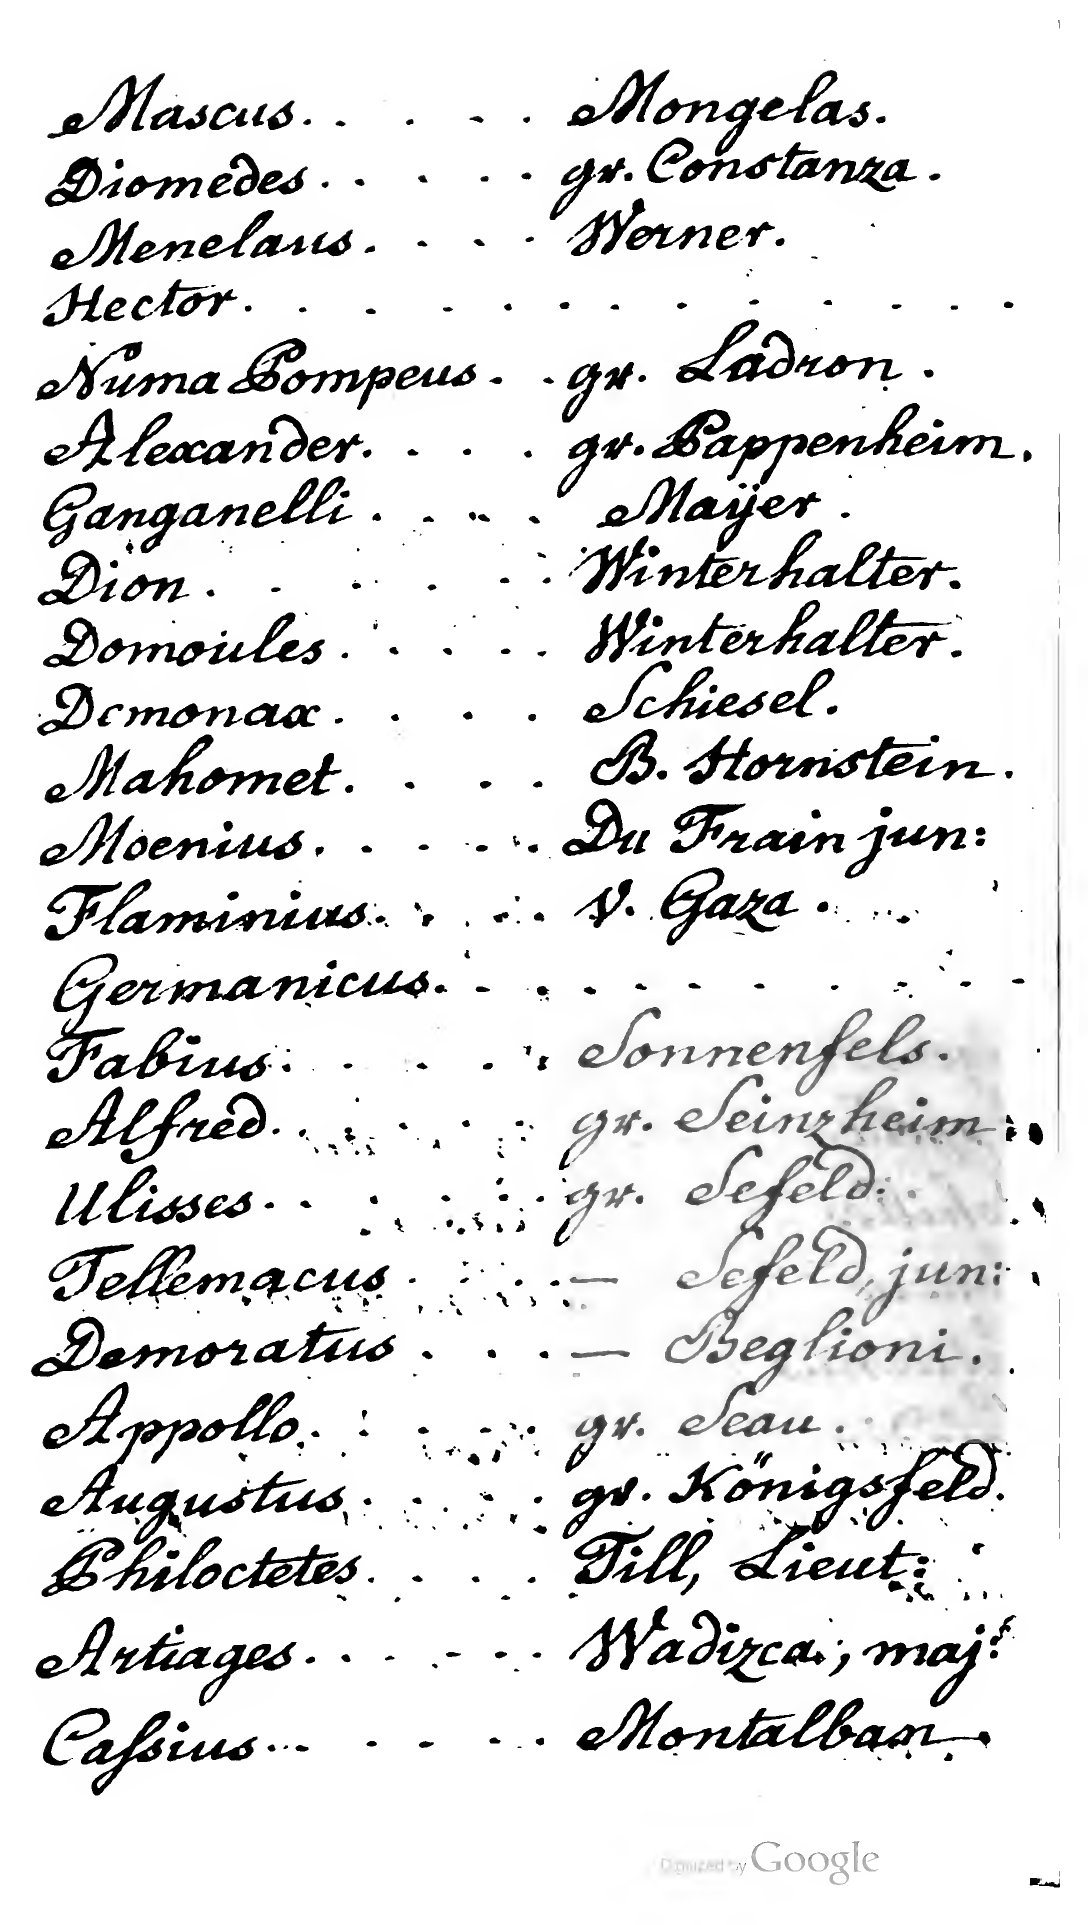 Mascus. . . . . . Mongelas.
Diomedes . . . . . . gr. Constanza .
Menelaus . . . . Werner.
Hector . . . . . . . . . . . .
Numa Pompeus . . gr. Ladron .
Alexander . . . . gr. Pappenheim .
Ganganelli . . . . Maÿer .
Dion . . . . . . Winterhalter.
Domoules . . . . . Winterhalter.
Demonax . . . . Schiesel.
Mahomet . . . . B. Hornstein .
Moenius . . . . . . Du Frain jun:
Flaminius . . . . V. Gaza .
Germanicus . . . . . . . . . . .
Fabius . . . . . . Sonnenfels.
Alfred . . . . . gr. Seinzheim
Ulisses . . . . . gr. Sefeld.
Tellemacus . . . . — Sefeld, jun:
Demoratus . . . — Beglioni .
Appollo . . . . . gr. Seau .
Augustus . . . . gr. Königsfeld.
Philoctetes . . . . Till, Lieut:
Artiages . . . . . . Wadizca., maj:
Caſsius . . . . . . Montalban .
Digitized by Google